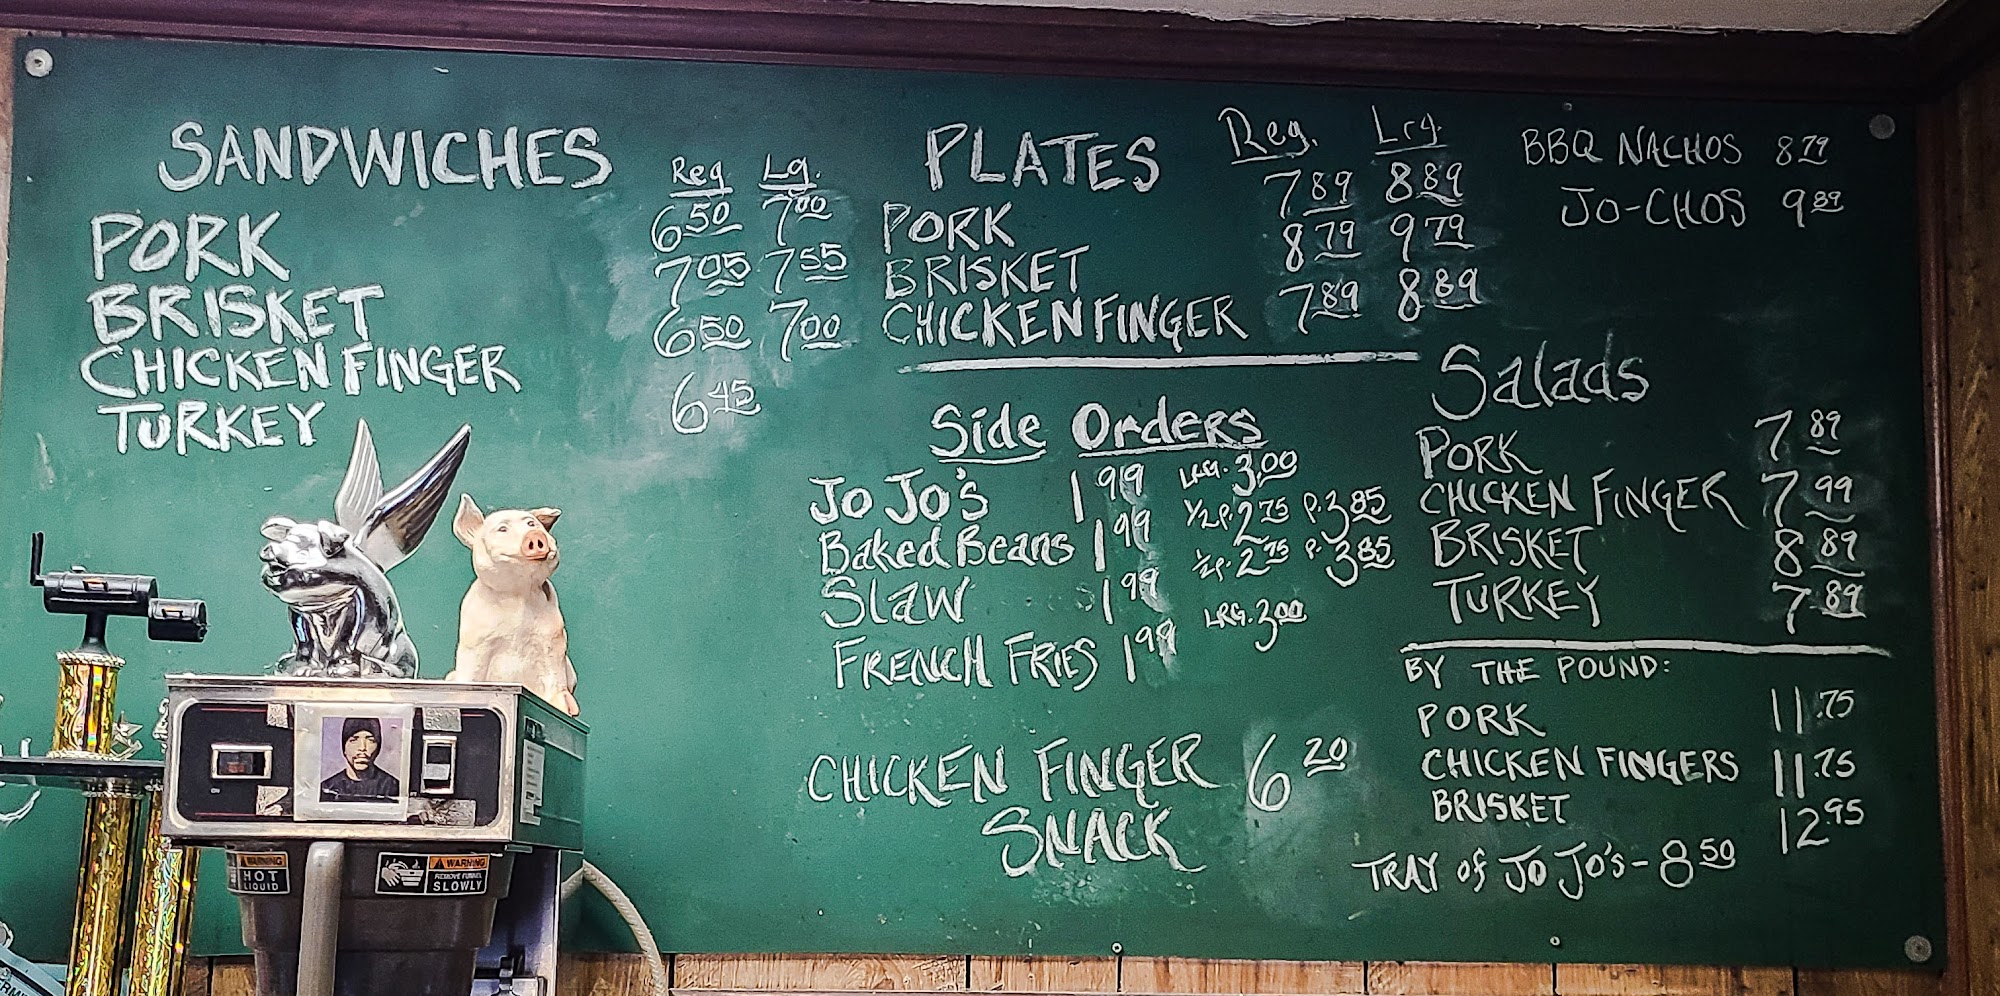 SANDWICHES Reg Lg.
PORK 6.50 7.00
BRISKET 7.05 7.55
CHICKEN FINGER 6.50 7.00
TURKEY 6.45
PLATES Reg. Lrg.
PORK 7.89 8.89
BRISKET 8.79 9.79
CHICKEN FINGER 7.89 8.89
Side Orders
Jo Jo's 1.99 LRG. 3.00
Baked Beans 1.99 1/2 P. 2.75 P. 3.85
SLAW 1.99 1/2 P. 2.75 P. 3.85
FRENCH FRIES 1.99 LRG. 3.00
CHICKEN FINGER 6.20
SNACK
BBQ NACHOS 8.79
JO-CHOS 9.89
Salads
PORK 7.89
CHICKEN FINGER 7.99
BRISKET 8.89
TURKEY 7.89
BY THE POUND:
PORK 11.75
CHICKEN FINGERS 11.75
BRISKET 12.95
TRAY of JO JO's - 8.50
WARNING
HOT
LIQUID
WARNING
REMOVE FUNNEL
SLOWLY